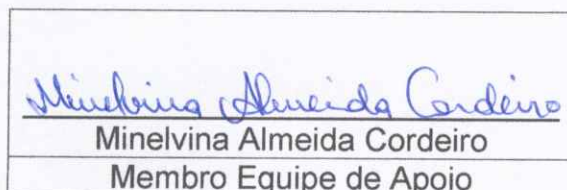 Minelvina Almeida Cordeiro
Minelvina Almeida Cordeiro
Membro Equipe de Apoio